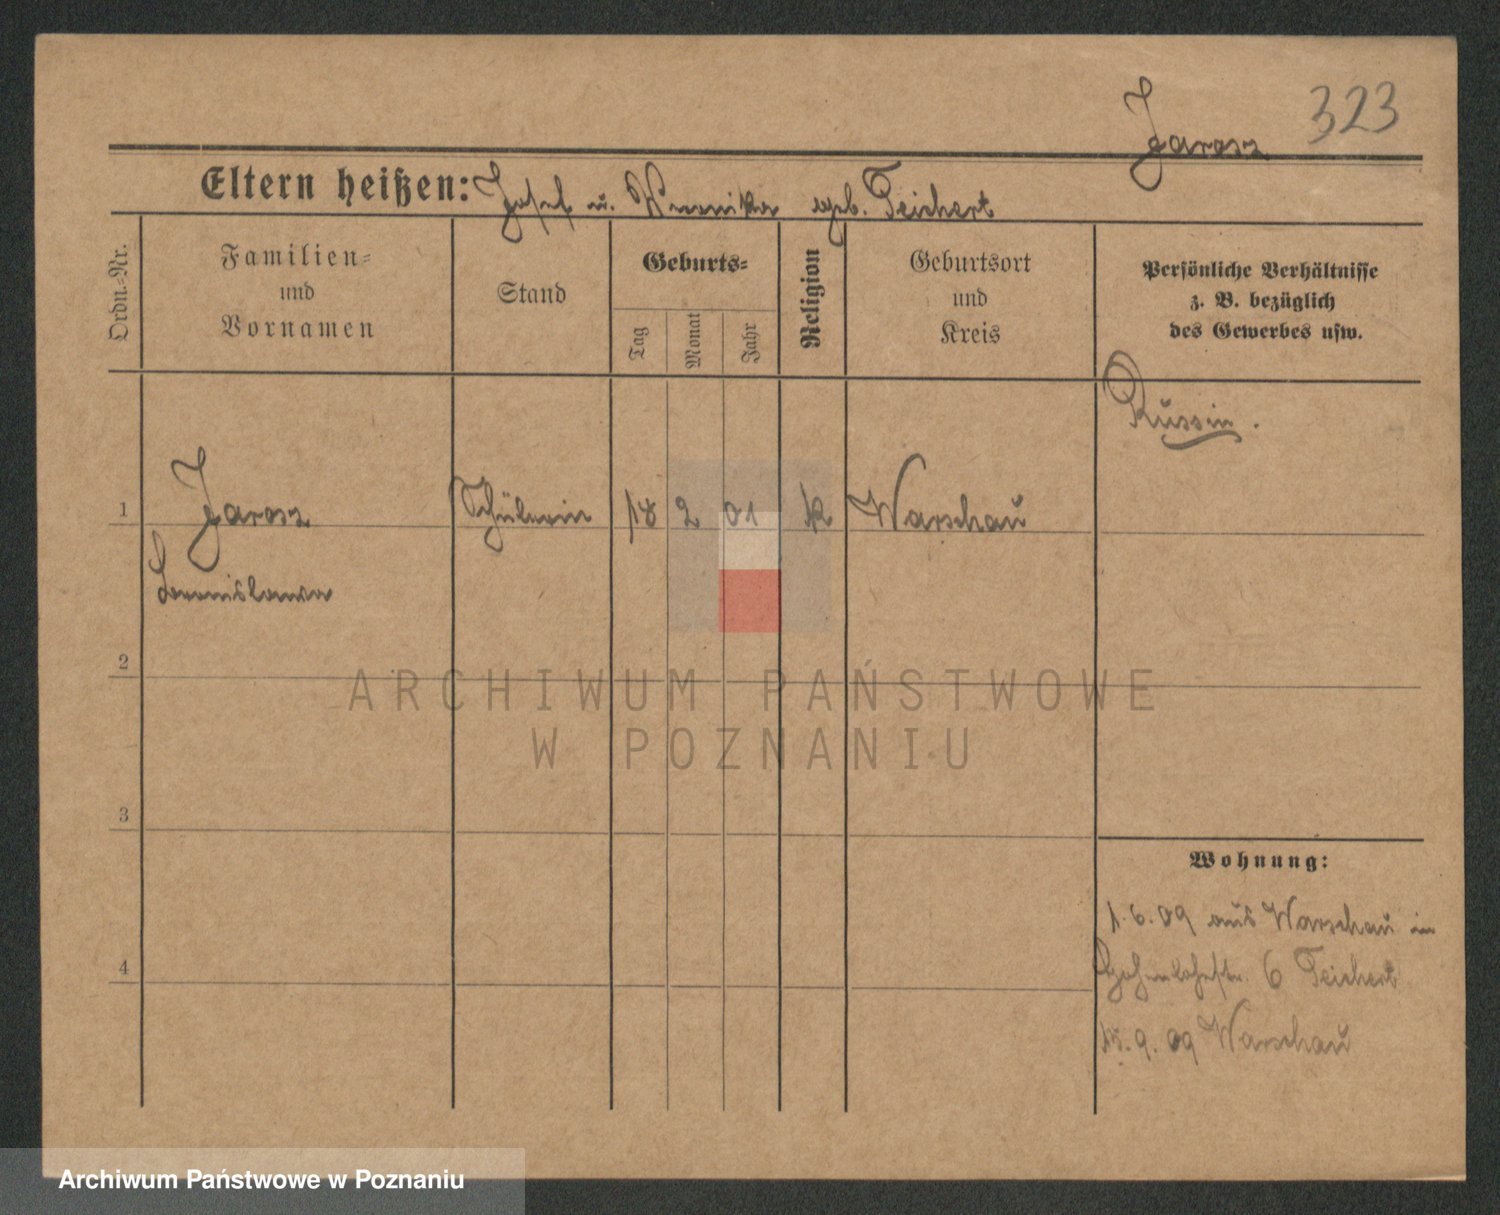 323
Jarosz
Eltern heißen: Josef u. Weronika geb. Teichert
Ordn.-Nr.
Familien-
und
Vornamen
Stand
Geburts-
Tag
Monat
Jahr
Religion
Geburtsort
und
Kreis
Persönliche Verhältnisse
z. B. bezüglich
des Gewerbes usw.
Russin.
1 Jarosz Schülerin 18 2 01 k Warschau
2
3
4
Wohnung:
1.6.09 aus Warschau in
Hohenlohestr. 6 Teichert
15.9.09 Warschau
ARCHIWUM PAŃSTWOWE
W POZNANIU
Archiwum Państwowe w Poznaniu